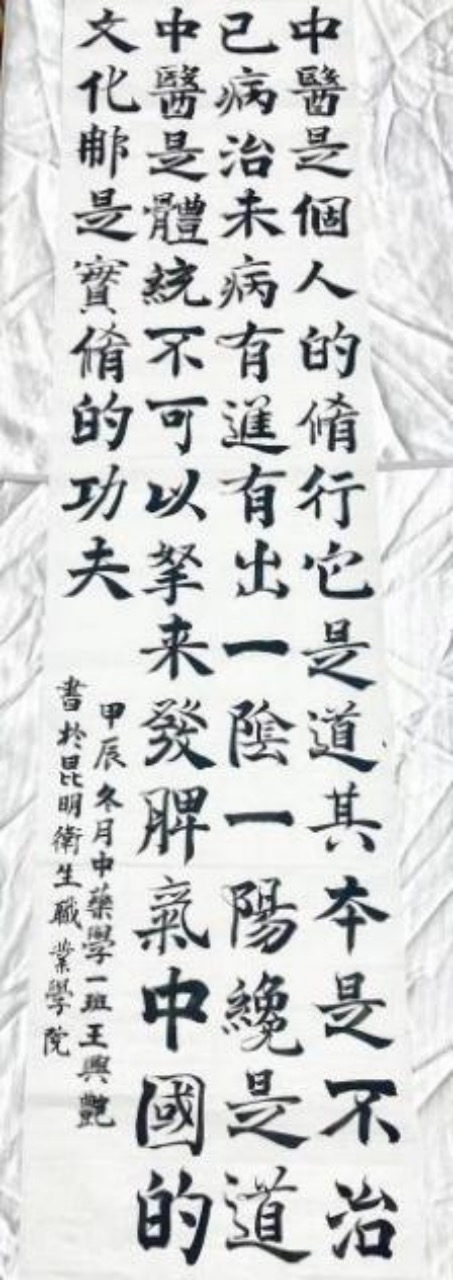 中醫是個人的脩行它是道其本是不治
已病治未病有進有出一陰一陽纔是道
中醫是體統不可以拏来發脾氣中國的
文化那是實脩的功夫
甲辰冬月中藥學一班王興艷
書於昆明衛生職業學院